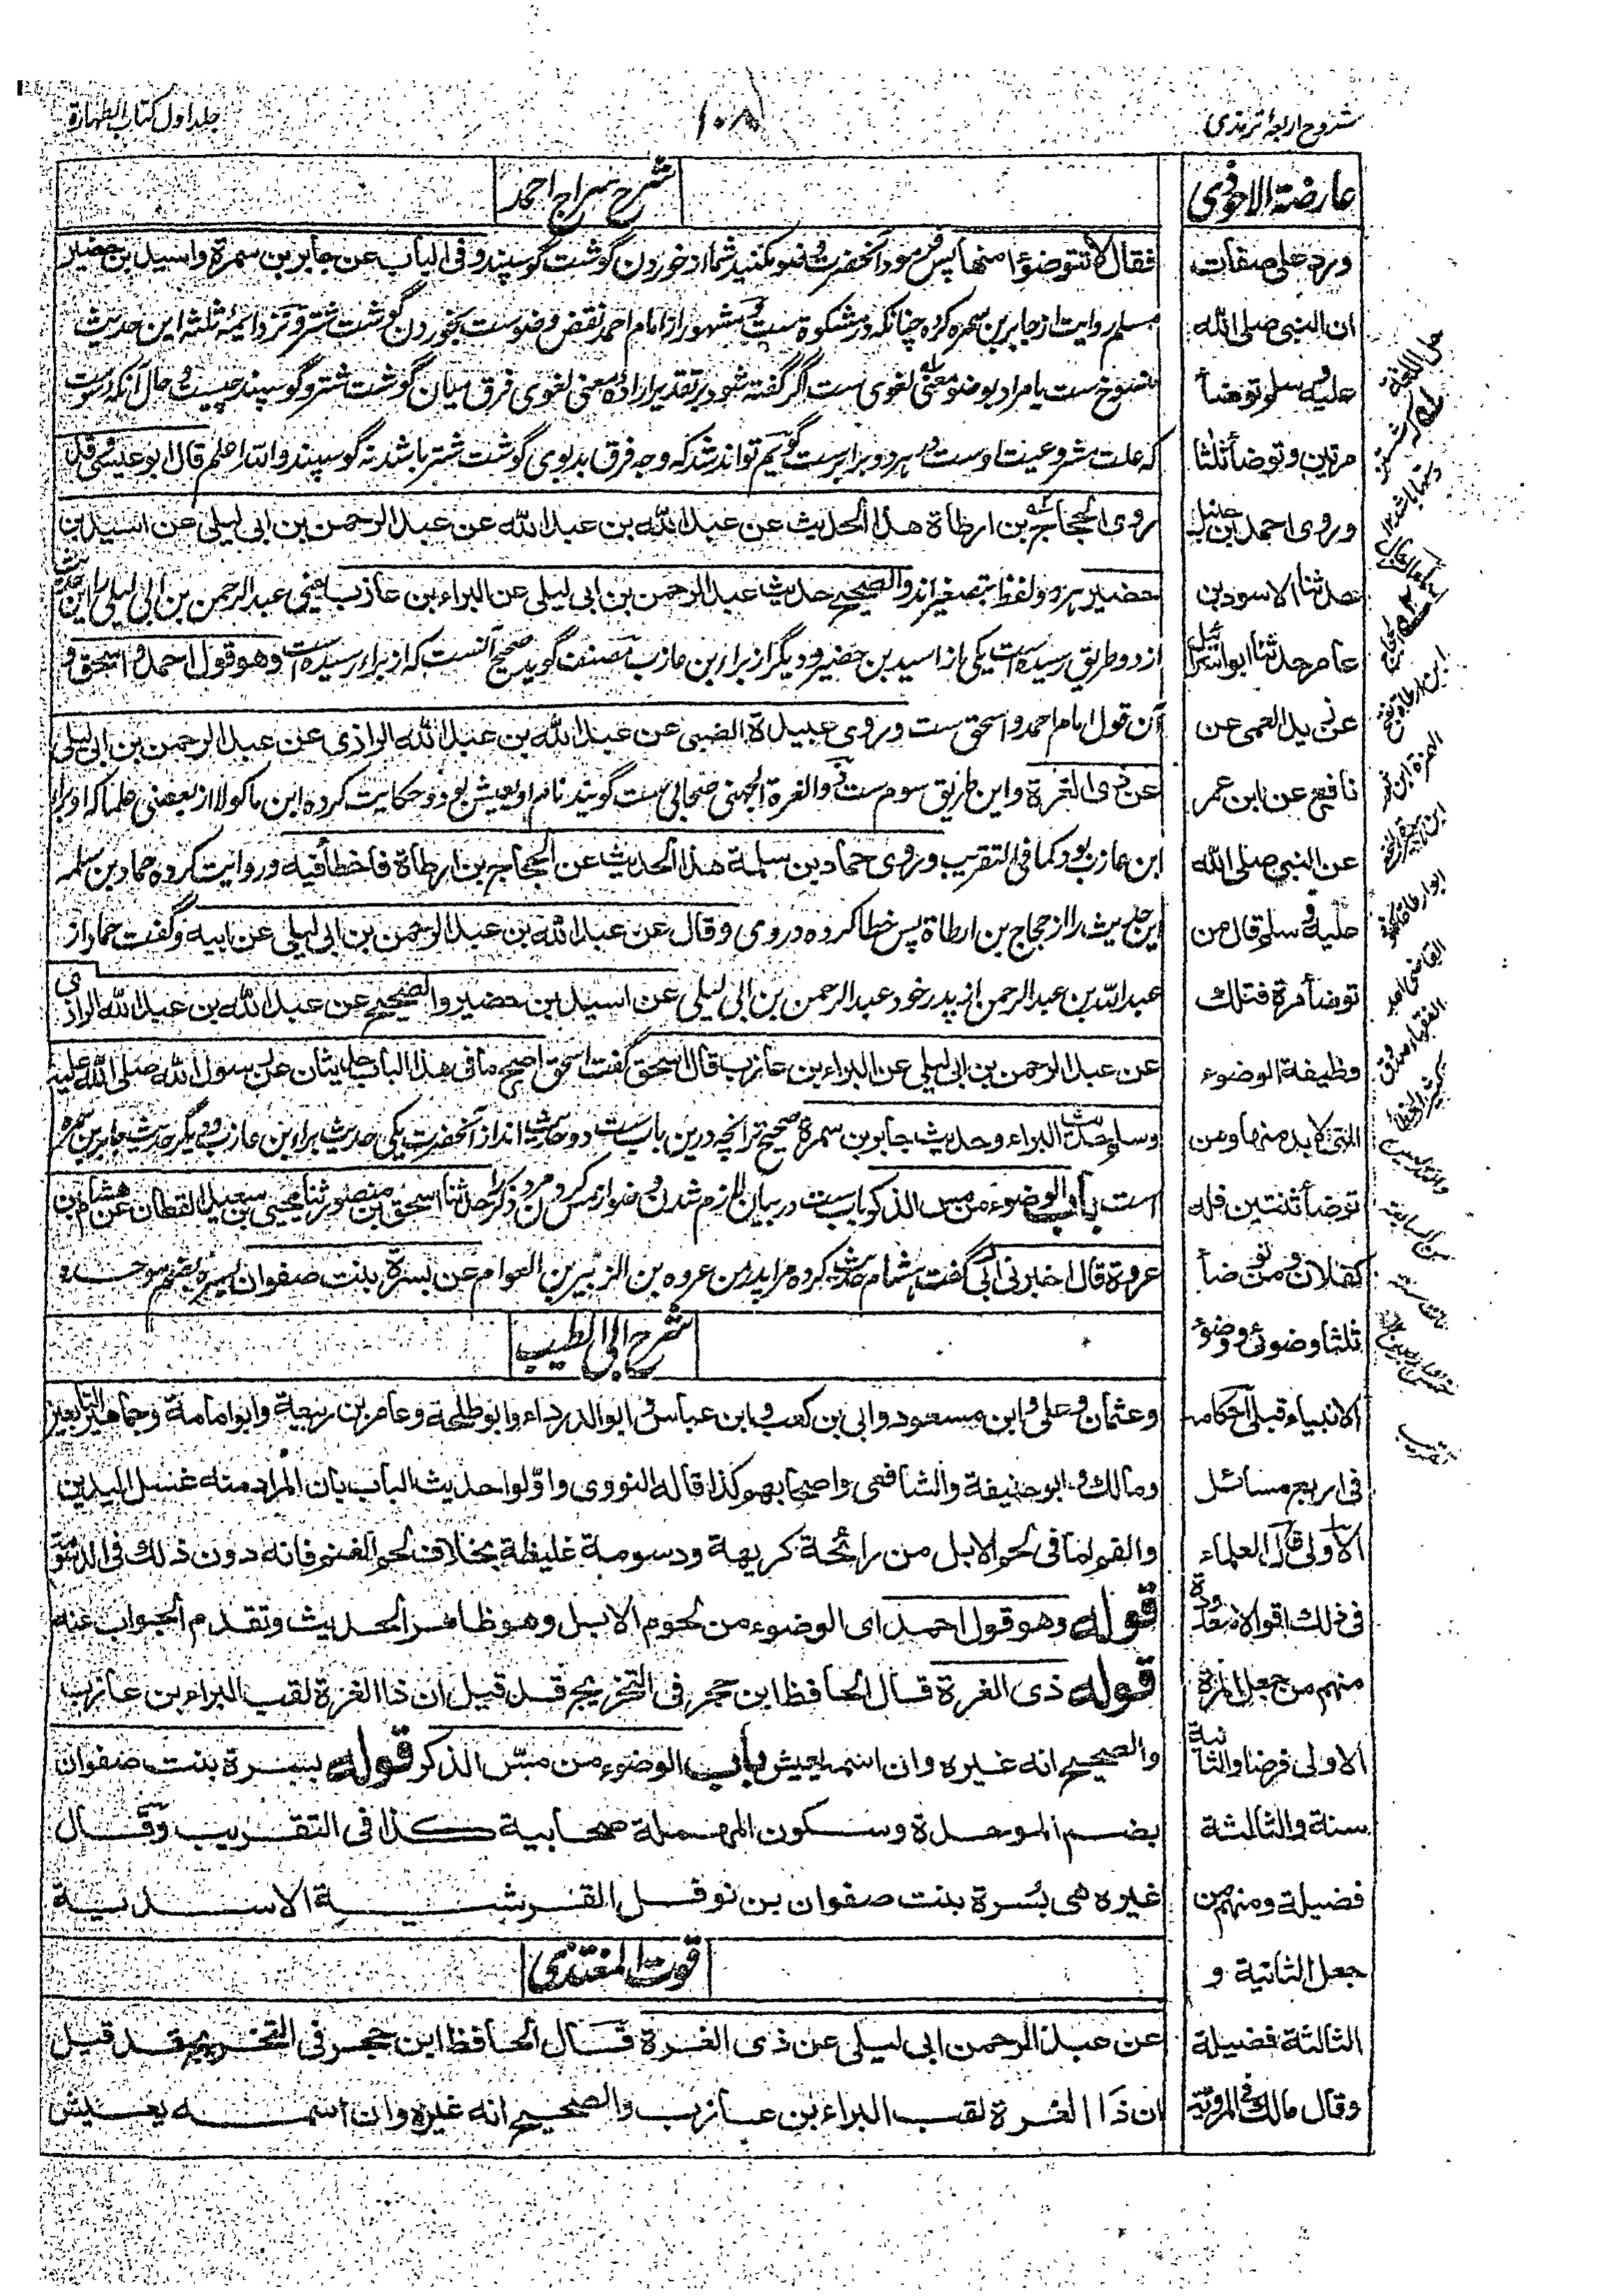 شروح اربعۂ ترمذی
۱۰۸
جلد اول کتاب الطهارة
عارضة الاحوذی
ورد علی صفات
ان النبی صلی الله
علیه وسلم توضأ
مرتین وتوضأ ثلثا
وروی احمد بن حنبل
حدثنا الاسود بن
عامر حدثنا ابو اسرائیل
عن زید العمی عن
نافع عن ابن عمر
عن النبی صلی الله
علیه وسلم قال من
توضأ مرة فتلك
وظیفة الوضوء
التی لا بد منها ومن
توضأ ثنتین فله
کفلان ومن توضأ
ثلثا وضوئی ووضوء
الانبیاء قبلی احکامه
فی اربع مسائل
الاولی قال العلماء
فی ذلك اقوالا متعددة
منهم من جعل المرة
الاولی فرضا والثانیة
سنة والثالثة
فضیلة ومنهم من
جعل الثانیة و
الثالثة فضیلة
وقال مالك فی المرویة
شرح سراج احمد
فقال لا تتوضؤا منها پس فرمود آنحضرت وضو مکنید شما از خوردن گوشت گوسپند وفی الباب عن جابر بن سمرة واسید بن حضیر
مسلم روایت از جابر بن سمره کرده چنانکه در مشکوة ست ومشهور از امام احمد نقض وضوست بخوردن گوشت شتر ونزد ائمه ثلثه این حدیث
منسوخ ست یا مراد بوضو معنی لغوی ست اگر گفته شود بر تقدیر ارادهٔ معنی لغوی فرق میان گوشت شتر وگوسپند چیست وحال آنکه دسومت
که علت مشروعیت اوست در هر دو برابرست گویم تواند شد که وجه فرق بدبوی گوشت شتر باشد نه گوسپند والله اعلم قال ابو عیسی وقد
روی الحجاج بن ارطاة هذا الحدیث عن عبد الله بن عبد الله عن عبد الرحمن بن ابی لیلی عن اسید بن
حضیر هر دو لفظ بتصغیراند والصحیح حدیث عبد الرحمن بن ابی لیلی عن البراء بن عازب یعنی عبد الرحمن بن ابی لیلی را این حدیث
از دو طریق رسیده است یکی از اسید بن حضیر ودیگر از براء بن عازب مصنف گوید صحیح آنست که از براء رسیده است وهو قول احمد واسحق و
آن قول امام احمد واسحق ست وروی عبیدة الضبی عن عبد الله بن عبد الله الرازی عن عبد الرحمن بن ابی لیلی
عن ذی الغرة واین طریق سوم ست وذو الغرة الجهنی صحابی ست گویند نام او یعیش بود وحکایت کرده ابن ماکولا از بعضی علما که او براء
ابن عازب بود کما فی التقریب وروی حماد بن سلمة هذا الحدیث عن الحجاج بن ارطاة فاخطأ فیه وروایت کرده حماد بن سلمه
این حدیث را از حجاج بن ارطاة پس خطا کرده در وی وقال عن عبد الله بن عبد الرحمن بن ابی لیلی عن ابیه وگفت حماد از
عبد الله بن عبد الرحمن از پدر خود عبد الرحمن بن ابی لیلی عن اسید بن حضیر والصحیح عن عبد الله بن عبد الله الرازی
عن عبد الرحمن بن ابی لیلی عن البراء بن عازب قال اسحق گفت اسحق اصح ما فی هذا الباب حدیثان عن رسول الله صلی الله علیه
وسلم حدیث البراء وحدیث جابر بن سمرة صحیح تر آنچه درین باب ست دو حدیث اند از آنحضرت یکی حدیث براء بن عازب ودیگر حدیث جابر بن سمره
است باب الوضوء من مس الذکر باب ست در بیان لازم شدن وضو از مس کردن مرد ذکر را حدثنا اسحق بن منصور ثنا یحیی بن سعید القطان عن هشام بن
عروة قال اخبرنی ابی گفت هشام حدیث کرده مرا پدر من عروه بن الزبیر بن العوام عن بسرة بنت صفوان بسره بضم موحده و
شرح ابی الطیب
وعثمان وعلی وابن مسعود وابی بن کعب وابن عباس وابو الدرداء وابو طلحة وعامر بن ربیعة وابو امامة وجماهیر التابعین
ومالك وابو حنیفة والشافعی واصحابهم کذا قاله النووی واوّلوا حدیث الباب بان المراد منه غسل الیدین
والفم لما فی لحم الابل من رائحة کریهة ودسومة غلیظة بخلاف لحم الغنم فانه دون ذلك فی الدسومة
قوله وهو قول احمد ای الوضوء من لحوم الابل وهو ظاهر الحدیث وتقدم الجواب عنه
قوله ذی الغرة قال الحافظ ابن حجر فی التخریج قد قیل ان ذا الغرة لقب البراء بن عازب
والصحیح انه غیره وان اسمه یعیش باب الوضوء من مسّ الذکر قوله بسرة بنت صفوان
بضم الموحدة وسکون المهملة صحابیة کذا فی التقریب وقال
غیره هی بُسرة بنت صفوان بن نوفل القرشیة الاسدیة
قوت المغتذی
عن عبد الرحمن ابی لیلی عن ذی الغرة قال الحافظ ابن حجر فی التخریج قد قیل
ان ذا الغرة لقب البراء بن عازب والصحیح انه غیره وان اسمه یعیش
حل اللغة